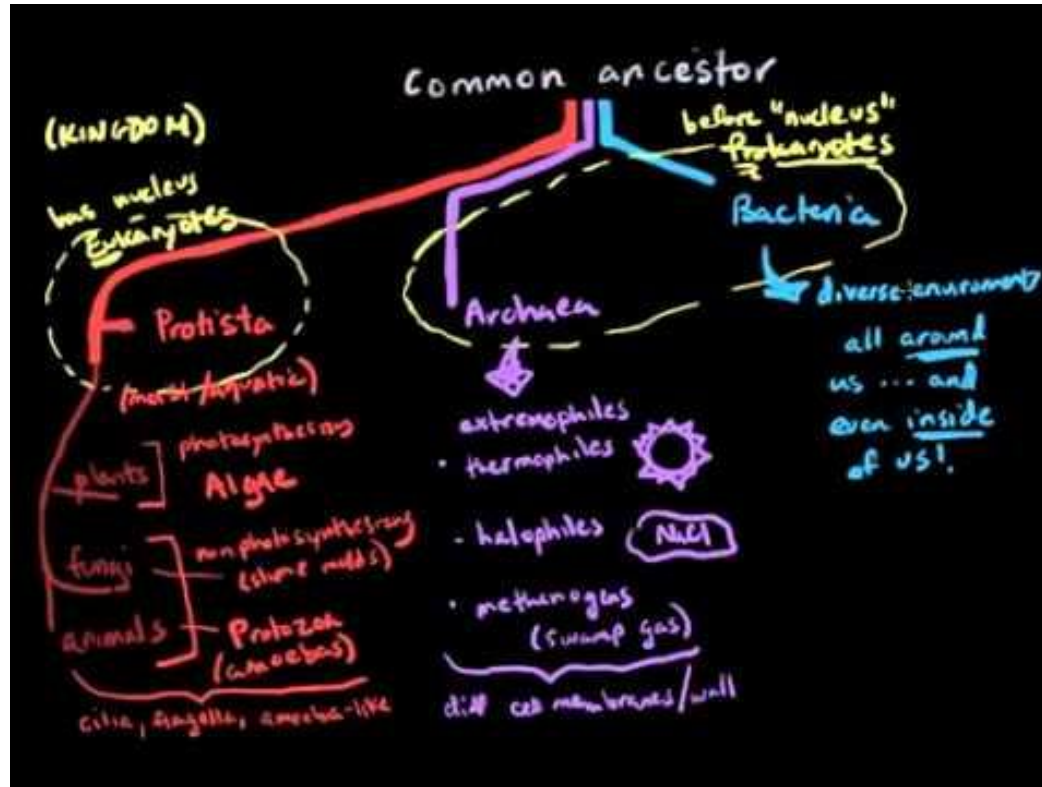 Common ancestor
(KINGDOM)
has nucleus
Eukaryotes
Protista
(moist/aquatic)
plants
photosynthesizing
Algae
fungi
nonphotosynthesizing
(slime molds)
animals
Protozoa
(amoebas)
cilia, flagella, amoeba-like
Archaea
extremophiles
• thermophiles
- halophiles
NaCl
• methanogens
(swamp gas)
diff cell membranes/wall
before "nucleus"
Prokaryotes
Bacteria
diverse enviroment
all around
us ... and
even inside
of us!